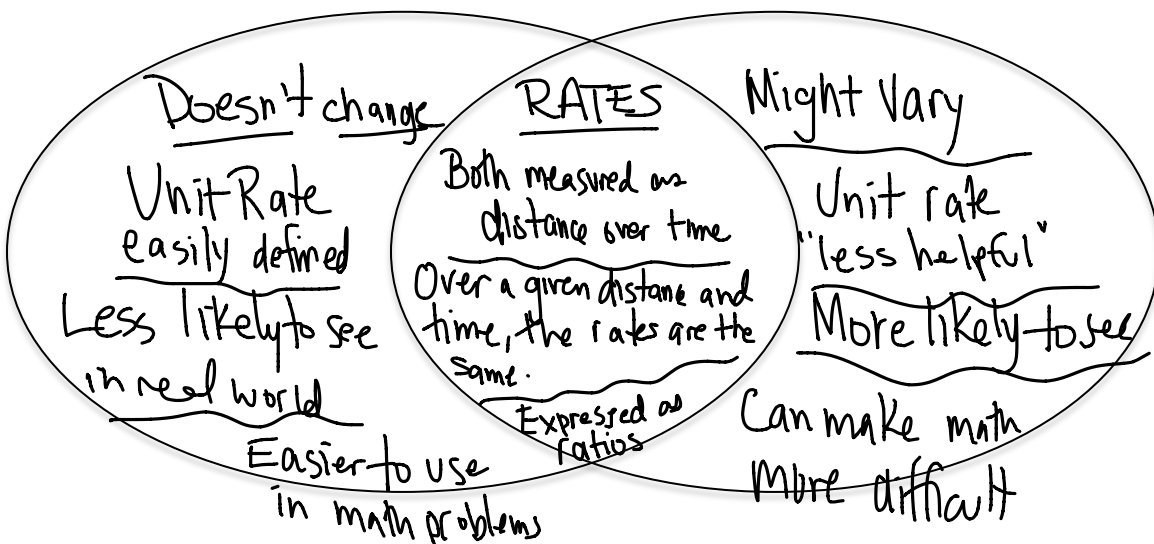 Doesn't change
Unit Rate
easily defined
Less likely to see
in real world
Easier to use
in math problems
RATES
Both measured as
distance over time
Over a given distane and
time, the rates are the
same.
Expressed as
ratios
Might Vary
Unit rate
"less helpful"
More likely to see
Can make math
more difficult